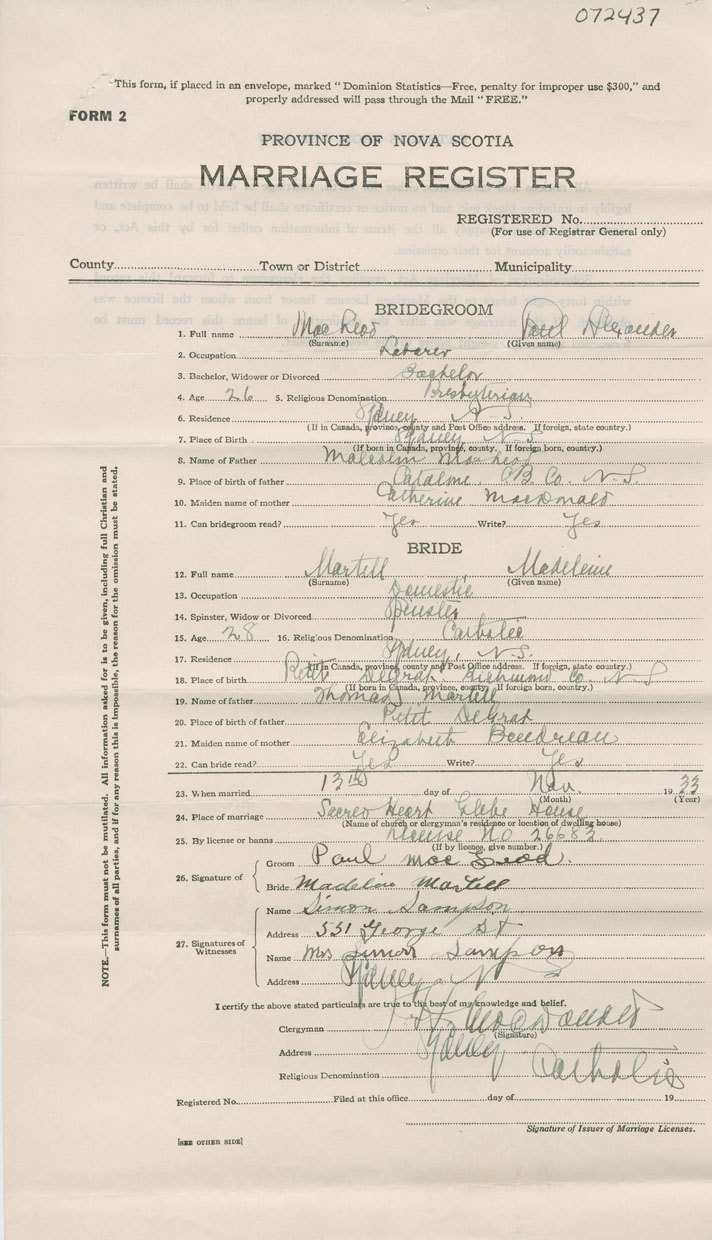 072437
This form, if placed in an envelope, marked "Dominion Statistics—Free, penalty for improper use $300," and
properly addressed will pass through the Mail "FREE."
FORM 2
PROVINCE OF NOVA SCOTIA
MARRIAGE REGISTER
REGISTERED No.
(For use of Registrar General only)
County Town or District Municipality
BRIDEGROOM
1. Full name MacLeod Paul Alexander
(Surname) (Given name)
2. Occupation Laborer
3. Bachelor, Widower or Divorced Bachelor
4. Age 26 5. Religious Denomination Presbyterian
6. Residence Sydney N.S.
(If in Canada, province, county and Post Office address. If foreign, state country.)
7. Place of Birth Sydney N S
(If born in Canada, province, county. If foreign born, country.)
8. Name of Father Malcolm MacLeod
9. Place of birth of father Catalone, C.B. Co. N.S.
10. Maiden name of mother Catherine MacDonald
11. Can bridegroom read? Yes Write? Yes
BRIDE
12. Full name Martell Madeleine
(Surname) (Given name)
13. Occupation Domestic
14. Spinster, Widow or Divorced Spinster
15. Age 28 16. Religious Denomination Catholic
17. Residence Sydney, N.S.
(If in Canada, province, county and Post Office address. If foreign, state country.)
18. Place of birth Petit DeGrat Richmond Co. N S
(If born in Canada, province, county. If foreign born, country.)
19. Name of father Thomas Martell
20. Place of birth of father Petit DeGrat
21. Maiden name of mother Elizabeth Boudreau
22. Can bride read? Yes Write? Yes
23. When married 13th day of Nov. 1933
(Month) (Year)
24. Place of marriage Sacred Heart Glebe House
(Name of church or clergyman's residence or location of dwelling house)
25. By license or banns License No 26683
(If by licence, give number.)
26. Signature of Groom Paul MacLeod.
Bride Madeline Martell
27. Signatures of Witnesses Name Simon Sampson
Address 551 George St
Name Mrs Simon Sampson
Address Sydney N
I certify the above stated particulars are true to the best of my knowledge and belief.
Clergyman MacDonald
(Signature)
Address Sydney
Religious Denomination Catholic
Registered No. Filed at this office day of 19
Signature of Issuer of Marriage Licenses.
[SEE OTHER SIDE]
NOTE.—This form must not be mutilated. All information asked for is to be given, including full Christian and
surnames of all parties, and if for any reason this is impossible, the reason for the omission must be stated.